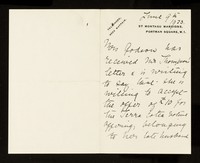 June 9th
1933.
57 MONTAGU MANSIONS,
PORTMAN SQUARE, W.1.
Mrs Godson has
received Mr Thompson's
letter & is writing
to say that she is
willing to accept
the offer of £10 for
the Terra Cotta
belonging
to her late husband